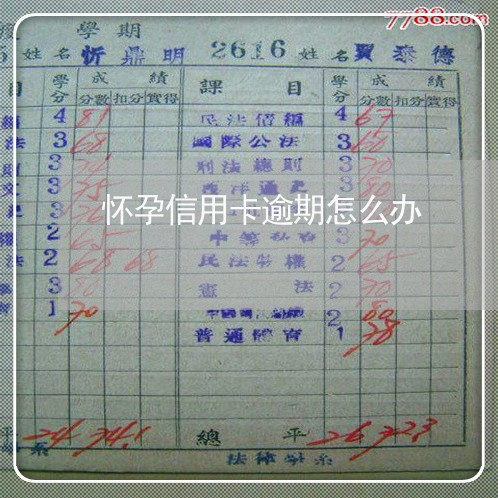 7788.com
學期
姓名 忻鼎明 2616 姓名 賈泰德
目 學分 成績 課目 學分 成績
分數 扣分 實得 分數 扣分 實得
4 81 民法債編 4 67
法 3 68 國際公法 3 60
3 刑法總則 3 70
3 75 西洋通史 3 80
怀孕信用卡逾期怎么办
2 65 3 70
法 2 68 68 民法物權 2 65
3 80 憲法 2 70
1 70 2 80
普通體育 1 78
平 24 74.1 總平 26 72.3
系 法律學系